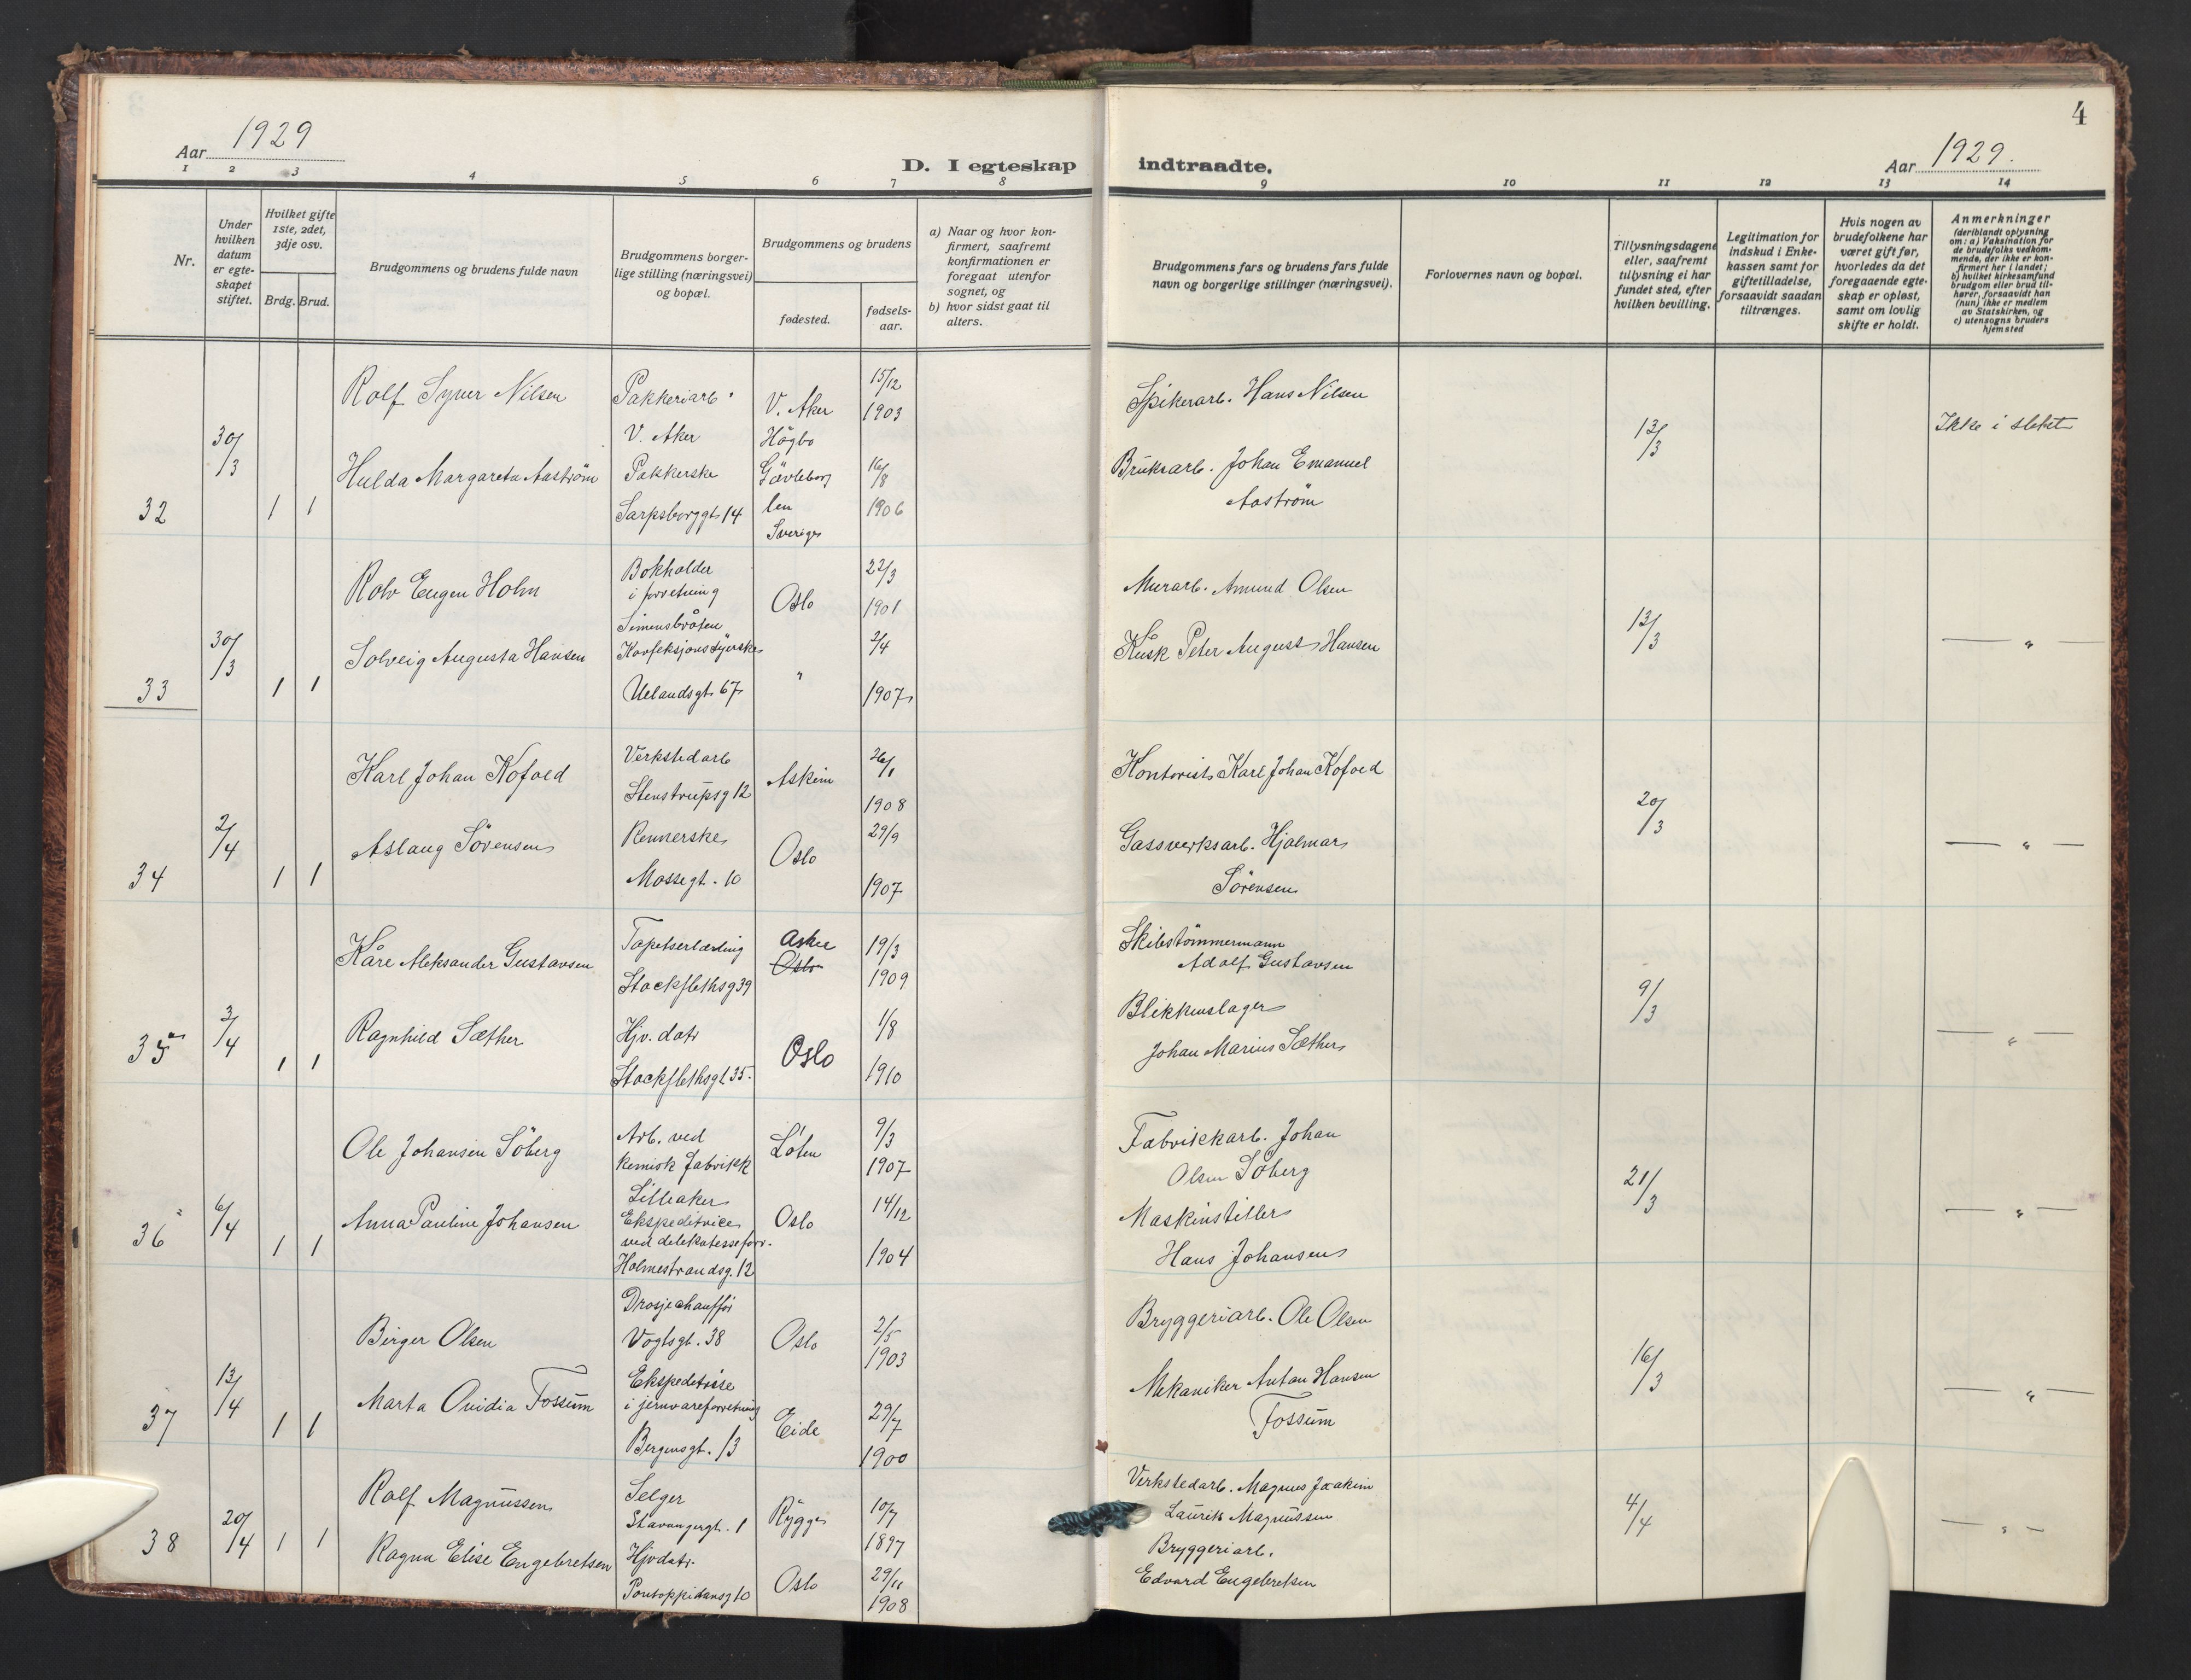 4
Aar 1929
D. I egteskap indtraadte.
Aar 1929.
1 2 3 4 5 6 7 8 9 10 11 12 13 14
Nr.
Under hvilken datum er egte-skapet stiftet.
Hvilket gifte 1ste, 2det, 3dje osv.
Brdg. Brud.
Brudgommens og brudens fulde navn
Brudgommens borger-lige stilling (næringsvei) og bopæl.
Brudgommens og brudens
fødested.
fødsels-aar.
a) Naar og hvor kon-firmert, saafremt konfirmationen er foregaat utenfor sognet, og
b) hvor sidst gaat til alters.
Brudgommens fars og brudens fars fulde navn og borgerlige stillinger (næringsvei).
Forlovernes navn og bopæl.
Tillysningsdagene eller, saafremt tillysning ei har fundet sted, efter hvilken bevilling.
Legitimation for indskud i Enke-kassen samt for giftetilladelse, forsaavidt saadan tiltrænges.
Hvis nogen av brudefolkene har været gift før, hvorledes da det foregaaende egte-skap er opløst, samt om lovlig skifte er holdt.
Anmerkninger
(deriblandt oplysning om: a) Vaksination for de brudefolks vedkom-mende, der ikke er kon-firmert her i landet; b) hvilket kirkesamfund brudgom eller brud til-hører, forsaavidt han (hun) ikke er medlem av Statskirken, og c) utensogns bruders hjemsted
32
30/3
1 1
Rolf Syver Nilsen
Pakkeriarb.
V. Aker
V. Aker
15/12
1903
Spikerarb. Hans Nilsen
13/3
Ikke i slekt
Hulda Margareta Aaström
Pakkerske
Sarpsborggt. 14
Högbo
Gävleborg
len
Sverige
16/8
1906
Bruksarb. Johan Emanuel
Aaström
33
30/3
1 1
Rolv Eugen Holm
Bokholder
i forretning
Simensbråten
Oslo
22/3
1901
Murarb. Amund Olsen
13/3
— " —
Solveig Augusta Hansen
Konfeksjonssyerske
Uelandsgt. 67
"
2/4
1907
Kusk Peter August Hansen
34
2/4
1 1
Karl Johan Kofoed
Verkstedarb
Stenstrupsg 12
Askim
26/1
1908
Kontorist Karl Johan Kofoed
20/3
— " —
Aslaug Sörensen
Rennerske
Mossegt. 10
Oslo
29/9
1907
Gassverksarb. Hjalmar
Sörensen
35
3/4
1 1
Kåre Aleksander Gustavsen
Tapetserlærling
Stockflethsg 39
Asker
Oslo
19/3
1909
Skibstömmermann
Adolf Gustavsen
9/3
— " —
Ragnhild Sæther
Hjv. datr
Stockflethsgt 35.
Oslo
1/8
1910
Blikkenslager
Johan Marius Sæther
36
6/4
1 1
Ole Johansen Söberg
Arb. ved
kemisk fabrikk
Lilleaker
Löten
9/3
1907
Fabrikkarb. Johan
Olsen Söberg
21/3
— " —
Anna Pauline Johansen
Ekspeditrice
ved delekatesseforr.
Holmestrandsg. 12
Oslo
14/12
1904
Maskinstiller
Hans Johansen
37
13/4
1 1
Birger Olsen
Drosjechauffør
Vogtsgt. 38
Oslo
2/5
1903
Bryggeriarb. Ole Olsen
16/3
— " —
Marta Ovidia Fossum
Ekspeditrise
i jernvareforretning
Bergensgt. 13
Eide
29/7
1900
Mekaniker Anton Hansen
Fossum
38
20/4
1 1
Rolf Magnussen
Selger
Stavangergt. 1
Rygge
10/7
1897
Verkstedarb. Magnus Joakim
Laurits Magnussen
4/4
— " —
Ragna Elise Engebretsen
Hjvdatr.
Pontoppidansg 10
Oslo
29/11
1908
Bryggeriarb.
Edvard Engebretsen